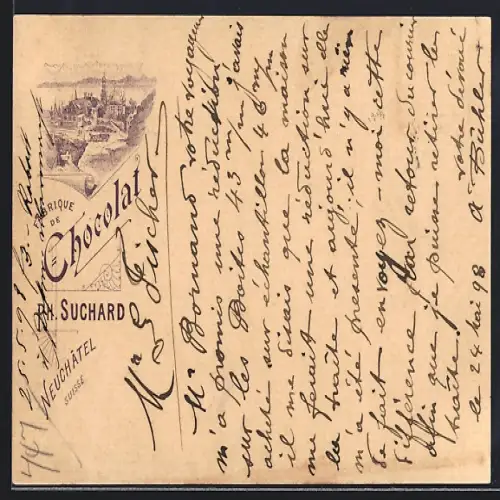 FABRIQUE
DE
Chocolat
PH. SUCHARD
NEUCHÂTEL
SUISSE
447
25.5.98
Mr G Fischer
Mr Bornand votre voyageur
m'a promis une réduction
sur les Boites 43 m/m j'avais
acheté sur échantillon 46 m/m
il me disais que la maison
me ferait une réduction sur
la traite et aujourd'hui elle
m'a été présenté, il n'y a rien
de fait envoyez-moi cette
différence par retour du courrier
affin que je puisse retirer la
traite. votre dévoué
le 24 Mai 98 A Bühler